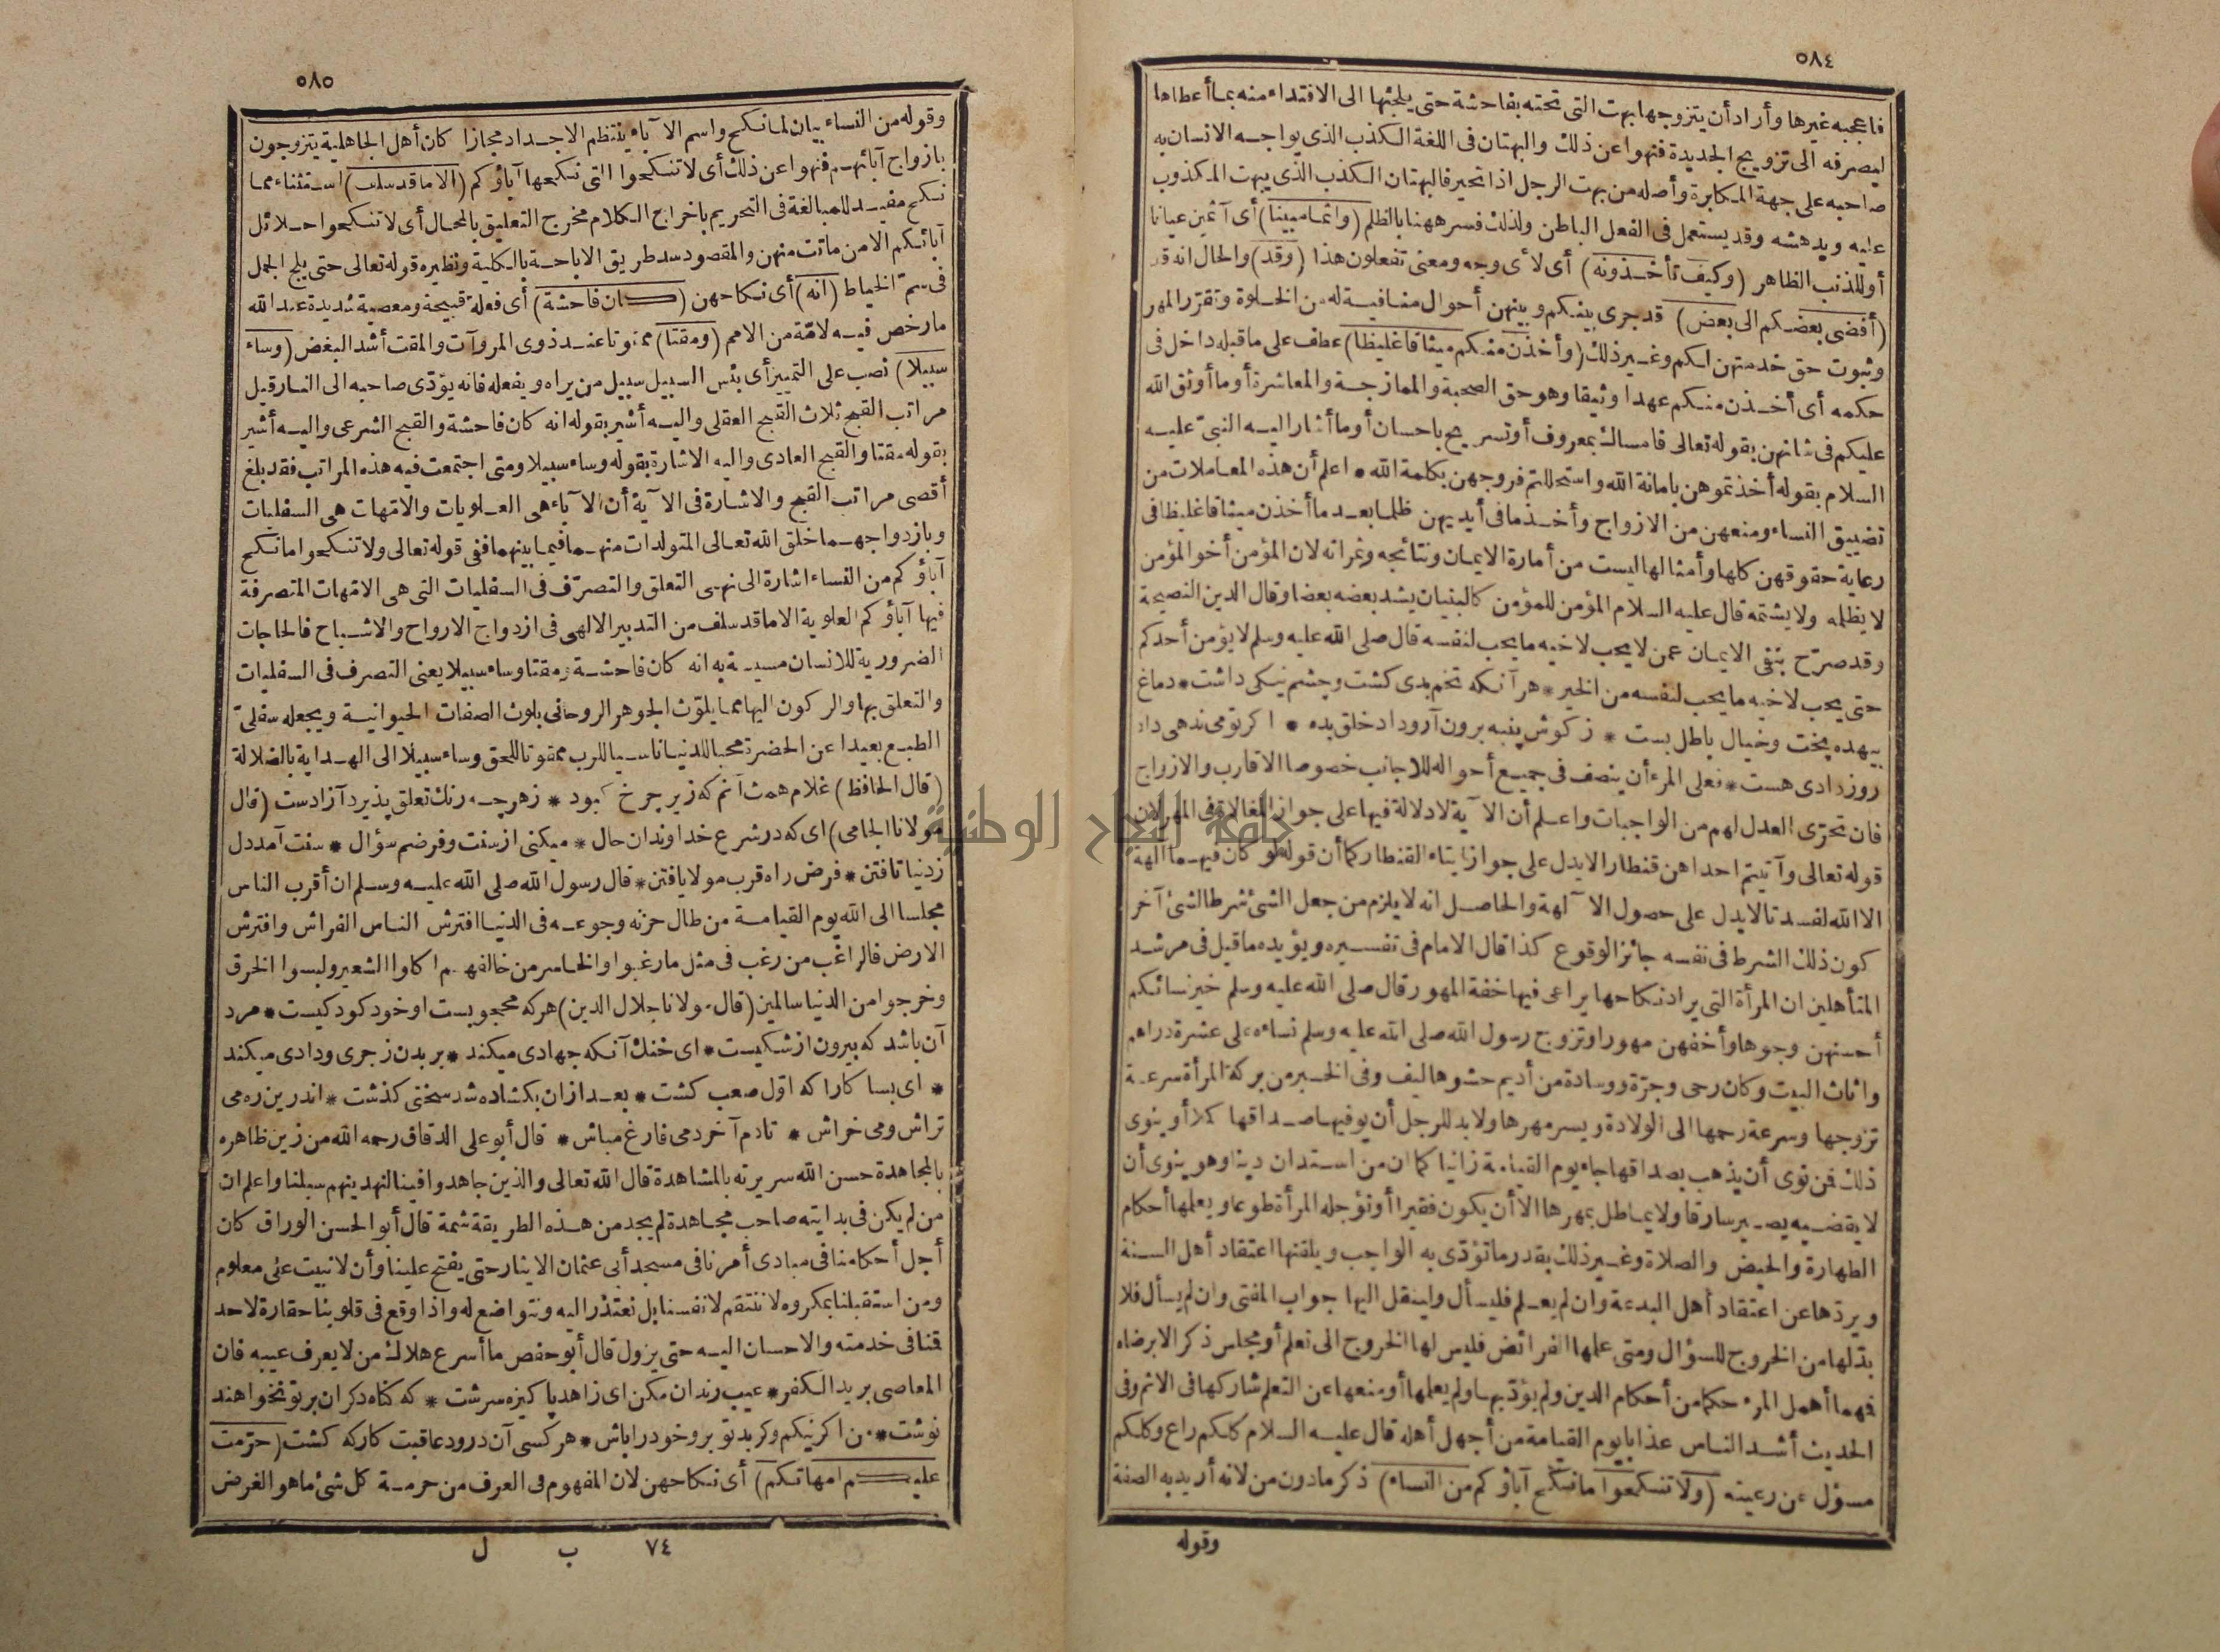 ٥٨٤
فاعجبه غيرها وأراد أن يتزوجها بهت التى تحته بفاحشة حتى يلجئها الى الافتداء منه بما أعطاها
ليصرفه الى تزويج الجديدة فنهوا عن ذلك والبهتان فى اللغة الكذب الذى يواجه الانسان به
صاحبه على جهة المكابرة وأصله من بهت الرجل اذا تحير فالبهتان الكذب الذى يبهت المكذوب
عليه ويدهشه وقد يستعمل فى الفعل الباطن ولذلك فسر ههنا بالظلم (واثما مبينا) أى آثمين عيانا
أو للذنب الظاهر (وكيف تأخذونه) أى لأى وجه ومعنى تفعلون هذا (وقد) والحال انه قد
(أفضى بعضكم الى بعض) قد جرى بينكم وبينهن أحوال منافية له من الخلوة وتقرر المهر
وثبوت حق خدمتهن لكم وغير ذلك (وأخذن منكم ميثاقا غليظا) عطف على ما قبله داخل فى
حكمه أى أخذن منكم عهدا وثيقا وهو حق الصحبة والممازجة والمعاشرة أو ما أوثق الله
عليكم فى شانهن بقوله تعالى فامساك بمعروف أو تسريح باحسان أو ما أشار اليه النبى عليه
السلام بقوله أخذتموهن بامانة الله واستحللتم فروجهن بكلمة الله * اعلم أن هذه المعاملات من
تضييق النساء ومنعهن من الازواج وأخذ ما فى أيديهن ظلما بعد ما أخذن ميثاقا غليظا فى
رعاية حقوقهن كلها وأمثالها ليست من أمارة الايمان ونتائجه وثمراته لان المؤمن أخو المؤمن
لا يظلمه ولا يشتمه قال عليه السلام المؤمن للمؤمن كالبنيان يشد بعضه بعضا وقال الدين النصيحة
وقد صرّح بنفى الايمان عمن لا يحب لاخيه ما يحب لنفسه قال صلى الله عليه وسلم لا يؤمن أحدكم
حتى يحب لاخيه ما يحب لنفسه من الخير * هر آنكه تخم بدى كشت وچشم نيكى داشت * دماغ
بيهده پخت وخيال باطل بست * زكوش پنبه برون آر وداد خلق بده * اكر تو مى ندهى داد
روز دادى هست * فعلى المرء أن ينصف فى جميع أحواله للاجانب خصوصا الاقارب والازواج
فان تحرّى العدل لهم من الواجبات واعلم أن الآية لا دلالة فيها على جواز المغالاة فى المهر لان
قوله تعالى وآتيتم احداهن قنطارا لا يدل على جواز ايتاء القنطار كما أن قوله لو كان فيهما آلهة
الا الله لفسدتا لا يدل على حصول الآلهة والحاصل انه لا يلزم من جعل الشئ شرطا لشئ آخر
كون ذلك الشرط فى نفسه جائز الوقوع كذا قال الامام فى تفسيره ويؤيده ما قيل فى مرشد
المتأهلين ان المرأة التى يراد نكاحها يراعى فيها خفة المهور قال صلى الله عليه وسلم خير نسائكم
أحسنهن وجوها وأخفهن مهورا وتزوج رسول الله صلى الله عليه وسلم نساءه على عشرة دراهم
واثاث البيت وكان رحى وجرّة ووسادة من أديم حشوها ليف وفى الخبر من بركة المرأة سرعة
تزوجها وسرعة رحمها الى الولادة ويسر مهرها ولا بد للرجل أن يوفيها صداقها كملا أو ينوى
ذلك فمن نوى أن يذهب بصداقها جاء يوم القيامة زانيا كما ان من استدان دينا وهو ينوى أن
لا يقضيه يصير سارقا ولا يماطل بمهرها الا أن يكون فقيرا أو تؤجله المرأة طوعا ويعلمها أحكام
الطهارة والحيض والصلاة وغير ذلك بقدر ما تؤدّى به الواجب ويلقنها اعتقاد أهل السنة
ويردّها عن اعتقاد أهل البدعة وان لم يعلم فليسأل ولينقل اليها جواب المفتى وان لم يسأل فلا
بدّ لها من الخروج للسؤال ومتى علمها الفرائض فليس لها الخروج الى تعلم أو مجلس ذكر الا برضاه
فهما أهمل المرء حكما من أحكام الدين ولم يؤدّبها ولم يعلمها أو منعها عن التعلم شاركها فى الاثم وفى
الحديث أشد الناس عذابا يوم القيامة من أجهل أهله قال عليه السلام كلكم راع وكلكم
مسؤل عن رعيته (ولا تنكحوا ما نكح آباؤكم من النساء) ذكر ما دون من لانه أريد به الصفة
وقوله
٥٨٥
وقوله من النساء بيان لما نكح واسم الآباء ينتظم الاجداد مجازا كان أهل الجاهلية يتزوجون
بازواج آبائهم فنهوا عن ذلك أى لا تنكحوا التى نكحها آباؤكم (الا ما قد سلف) استثناء مما
نكح مفيد للمبالغة فى التحريم باخراج الكلام مخرج التعليق بالمحال أى لا تنكحوا حلائل
آبائكم الا من ماتت منهن والمقصود سد طريق الاباحة بالكلية ونظيره قوله تعالى حتى يلج الجمل
فى سمّ الخياط (انه) أى نكاحهن (كان فاحشة) أى فعلة قبيحة ومعصية شديدة عند الله
ما رخص فيه لامّة من الامم (ومقتا) ممقوتا عند ذوى المروآت والمقت أشد البغض (وساء
سبيلا) نصب على التمييز أى بئس السبيل سبيل من يراه ويفعله فانه يؤدّى صاحبه الى النار قيل
مراتب القبح ثلاث القبح العقلى واليه أشير بقوله انه كان فاحشة والقبح الشرعى واليه أشير
بقوله مقتا والقبح العادى واليه الاشارة بقوله وساء سبيلا ومتى اجتمعت فيه هذه المراتب فقد بلغ
أقصى مراتب القبح والاشارة فى الآية أن الآباء هى العلويات والامّهات هى السفليات
وبازدواجهما خلق الله تعالى المتولدات منهما فيما بينهما ففى قوله تعالى ولا تنكحوا ما نكح
آباؤكم من النساء اشارة الى نهى التعلق والتصرّف فى السفليات التى هى الامّهات المتصرفة
فيها آباؤكم العلوية الا ما قد سلف من التدبير الالهى فى ازدواج الارواح والاشباح فالحاجات
الضرورية للانسان مسيسة به انه كان فاحشة ومقتا وساء سبيلا يعنى التصرف فى السفليات
والتعلق بها والركون اليها مما يلوّث الجوهر الروحانى بلوث الصفات الحيوانية ويجعله سفلىّ
الطبع بعيدا عن الحضرة محبا للدنيا ناسيا للرب ممقوتا للحق وساء سبيلا الى الهداية بالضلالة
(قال الحافظ) غلام همت آنم كه زير چرخ كبود * زهرچه رنك تعلق پذيرد آزادست (قال
مولانا الجامى) اى كه در شرع خداوندان حال * ميكنى از سنت وفرضم سؤال * سنت آمد دل
زدنيا تافتن * فرض راه قرب مولا يافتن * قال رسول الله صلى الله عليه وسلم ان أقرب الناس
مجلسا الى الله يوم القيامة من طال حزنه وجوعه فى الدنيا افترش الناس الفراش وافترش
الارض فالراغب من رغب فى مثل ما رغبوا والخاسر من خالفهم اكلوا الشعير ولبسوا الخرق
وخرجوا من الدنيا سالمين (قال مولانا جلال الدين) هركه محجوبست او خود كودكيست * مرد
آن باشد كه بيرون از شكيست * اى خنك آنكه جهادى ميكند * بر بدن زجرى ودادى ميكند
* اى بسا كارا كه اوّل صعب كشت * بعد ازان بكشاده شد سختى كذشت * اندرين ره مى
تراش ومى خراش * تا دم آخر دمى فارغ مباش * قال أبو على الدقاق رحمه الله من زين ظاهره
بالمجاهدة حسن الله سريرته بالمشاهدة قال الله تعالى والذين جاهدوا فينا لنهدينهم سبلنا واعلم ان
من لم يكن فى بدايته صاحب مجاهدة لم يجد من هذه الطريقة شمة قال أبو الحسن الوراق كان
أجل أحكامنا فى مبادى أمرنا فى مسجد أبى عثمان الايثار حتى يفتح علينا وأن لا نبيت على معلوم
ومن استقبلنا بمكروه لا ننتقم لانفسنا بل نعتذر اليه ونتواضع له واذا وقع فى قلوبنا حقارة لاحد
قنا فى خدمته والاحسان اليه حتى يزول قال أبو حفص ما أسرع هلاك من لا يعرف عيبه فان
المعاصى بريد الكفر * عيب رندان مكن اى زاهد پاكيزه سرشت * كه كناه دكران بر تو نخواهند
نوشت * من اكر نيكم وكر بد تو برو خود را باش * هر كسى آن درود عاقبت كار كه كشت (حرّمت
عليكم امهاتكم) أى نكاحهن لان المفهوم فى العرف من حرمة كل شئ ما هو الغرض
٧٤ ب ل
جامعة النجاح الوطنية